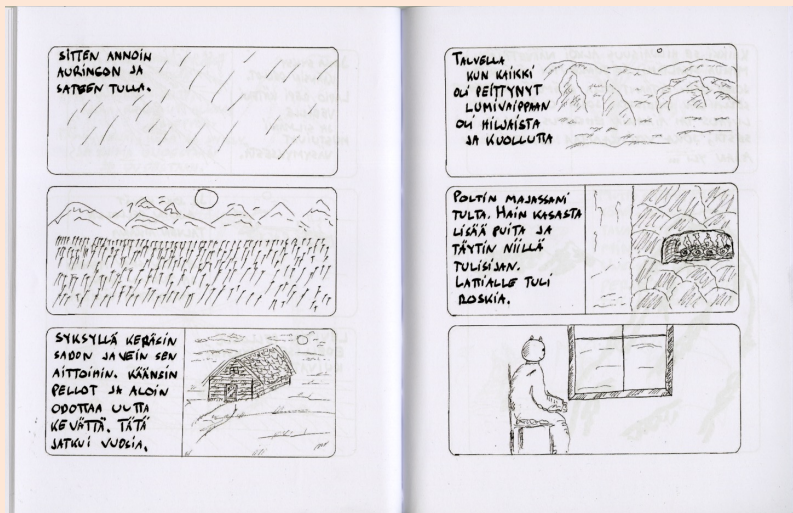 SITTEN ANNOIN
AURINGON JA
SATEEN TULLA.
SYKSYLLÄ KERÄSIN
SADON JA VEIN SEN
AITTOIHIN. KÄÄNSIN
PELLOT JA ALOIN
ODOTTAA UUTTA
KEVÄTTÄ. TÄTÄ
JATKUI VUOSIA.
TALVELLA
KUN KAIKKI
OLI PEITTYNYT
LUMIVAIPPAAN
OLI HILJAISTA
JA KUOLLUTTA
POLTIN MAJASSANI
TULTA. HAIN KASASTA
LISÄÄ PUITA JA
TÄYTIN NIILLÄ
TULISIJAN.
LATTIALLE TULI
ROSKIA.